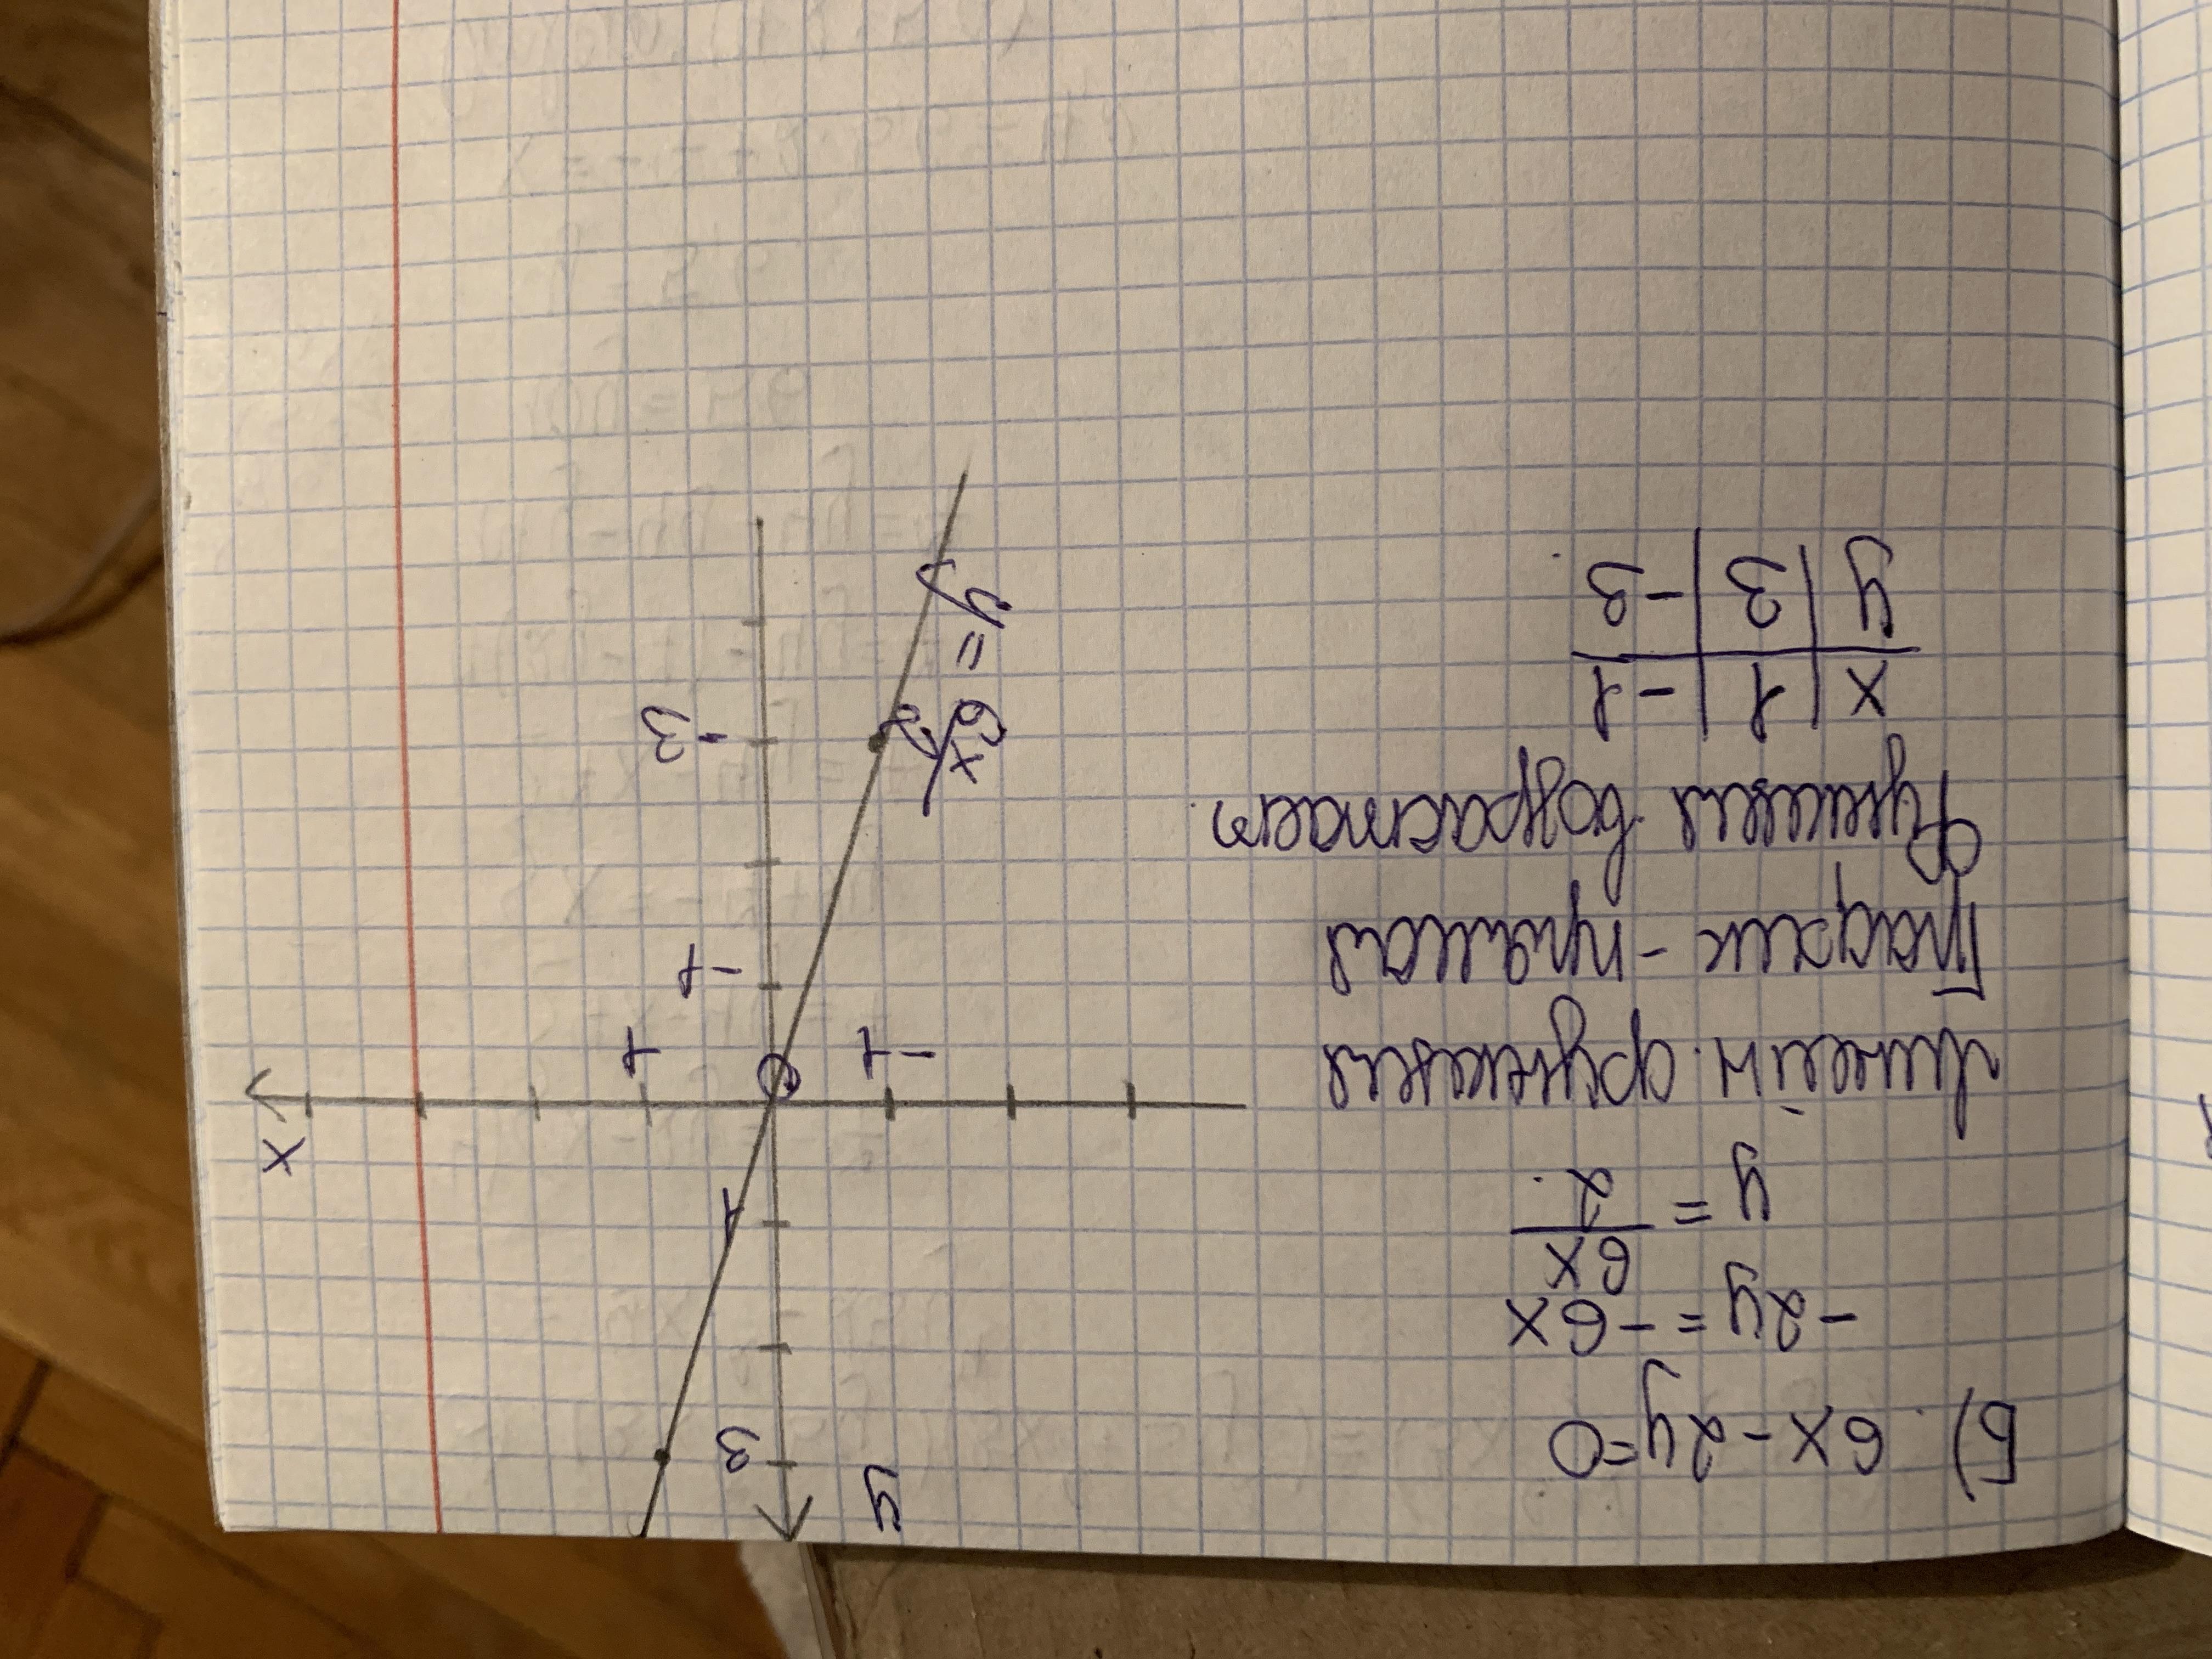 Б) 6x - 2y = 0
-2y = -6x
y = 6x/2
Линейн. функция
График - прямая
Функция возрастает
x | 1 | -1
y | 3 | -3
y
3
1
x
-1
0
1
-1
-3
y = 6x/2